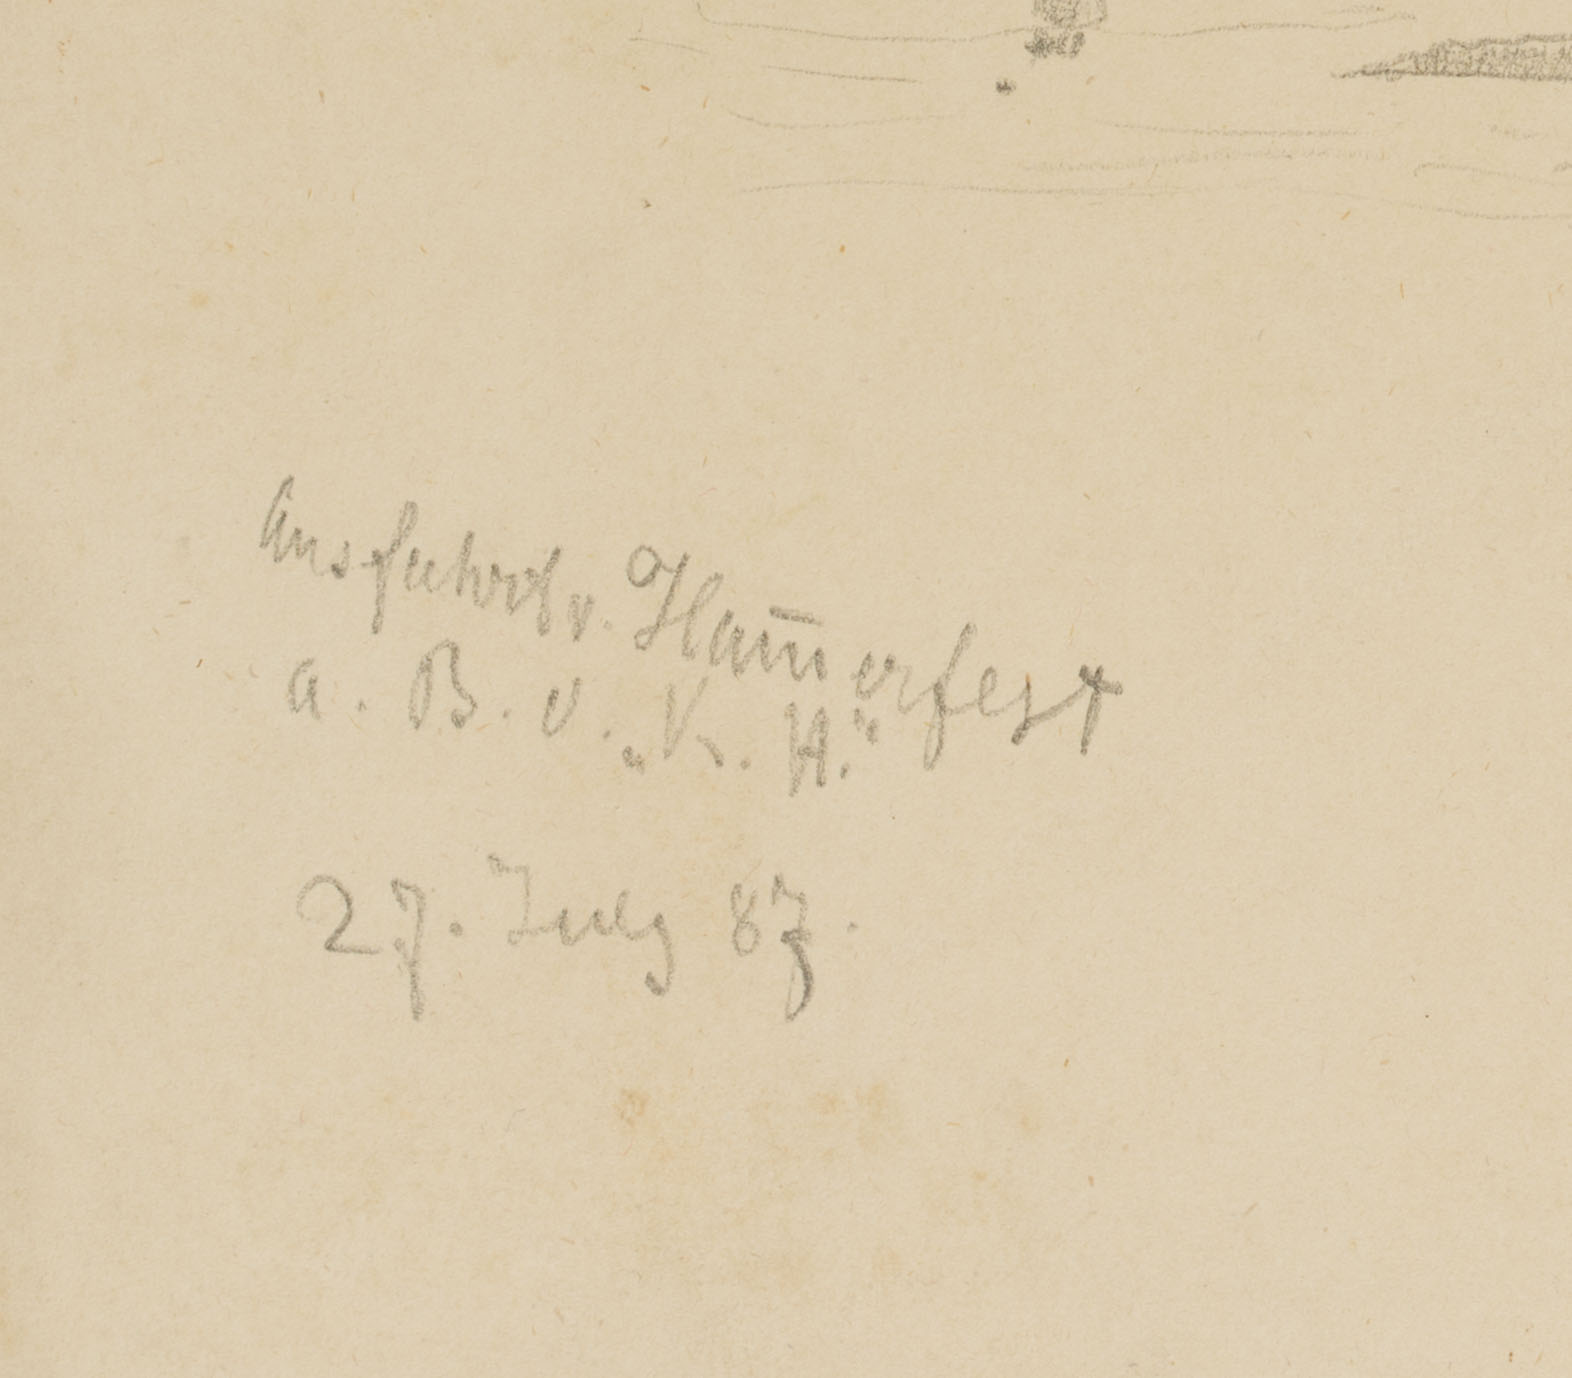 Ausfahrt v. Ham̅erfest
a. B. v. „K. H.“
27. July 87.